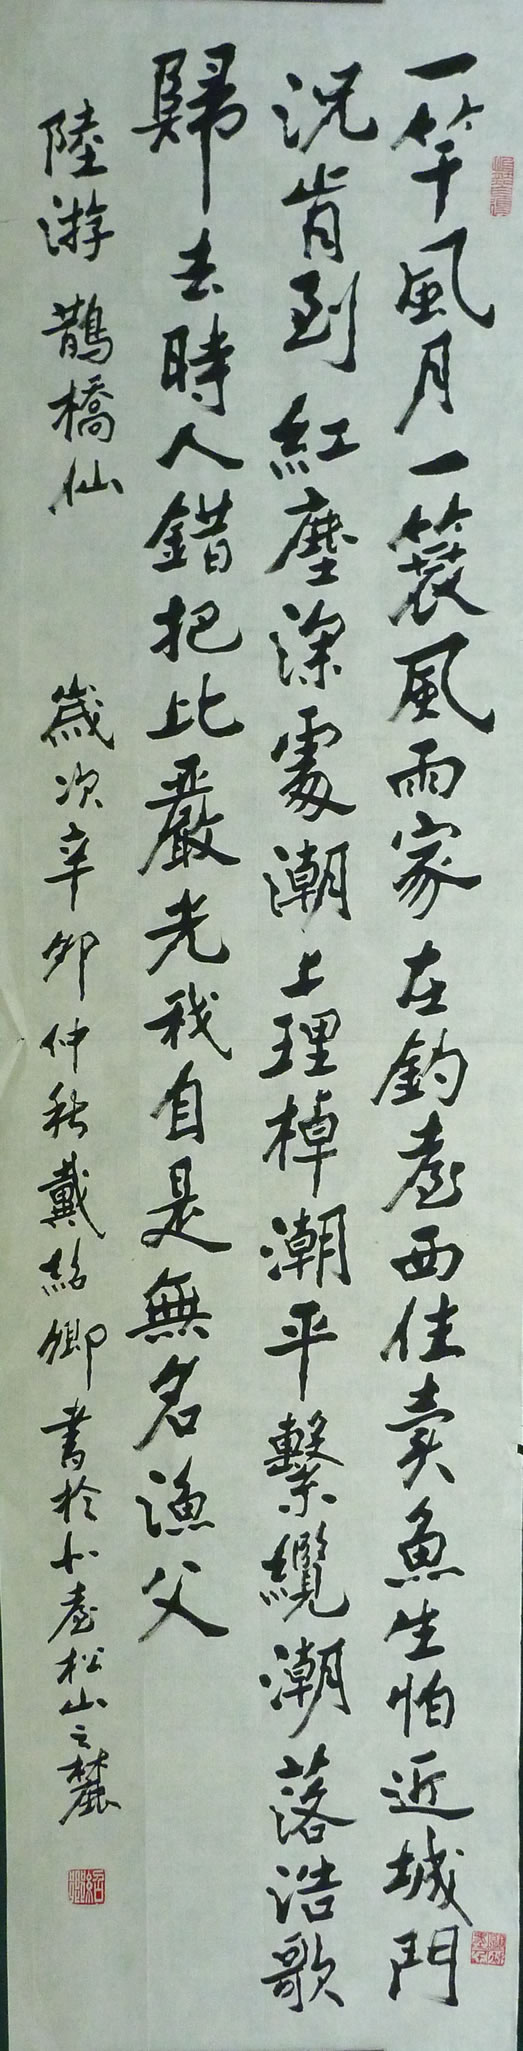 一竿風月一簑風雨家在釣臺西住賣魚生怕近城門
況肯到紅塵深處潮上理棹潮平繫纜潮落浩歌
歸去時人錯把比嚴老我自是無名漁父
陸游 鵲橋仙 歲次辛卯仲秋戴紹卿書於北臺松山之麓